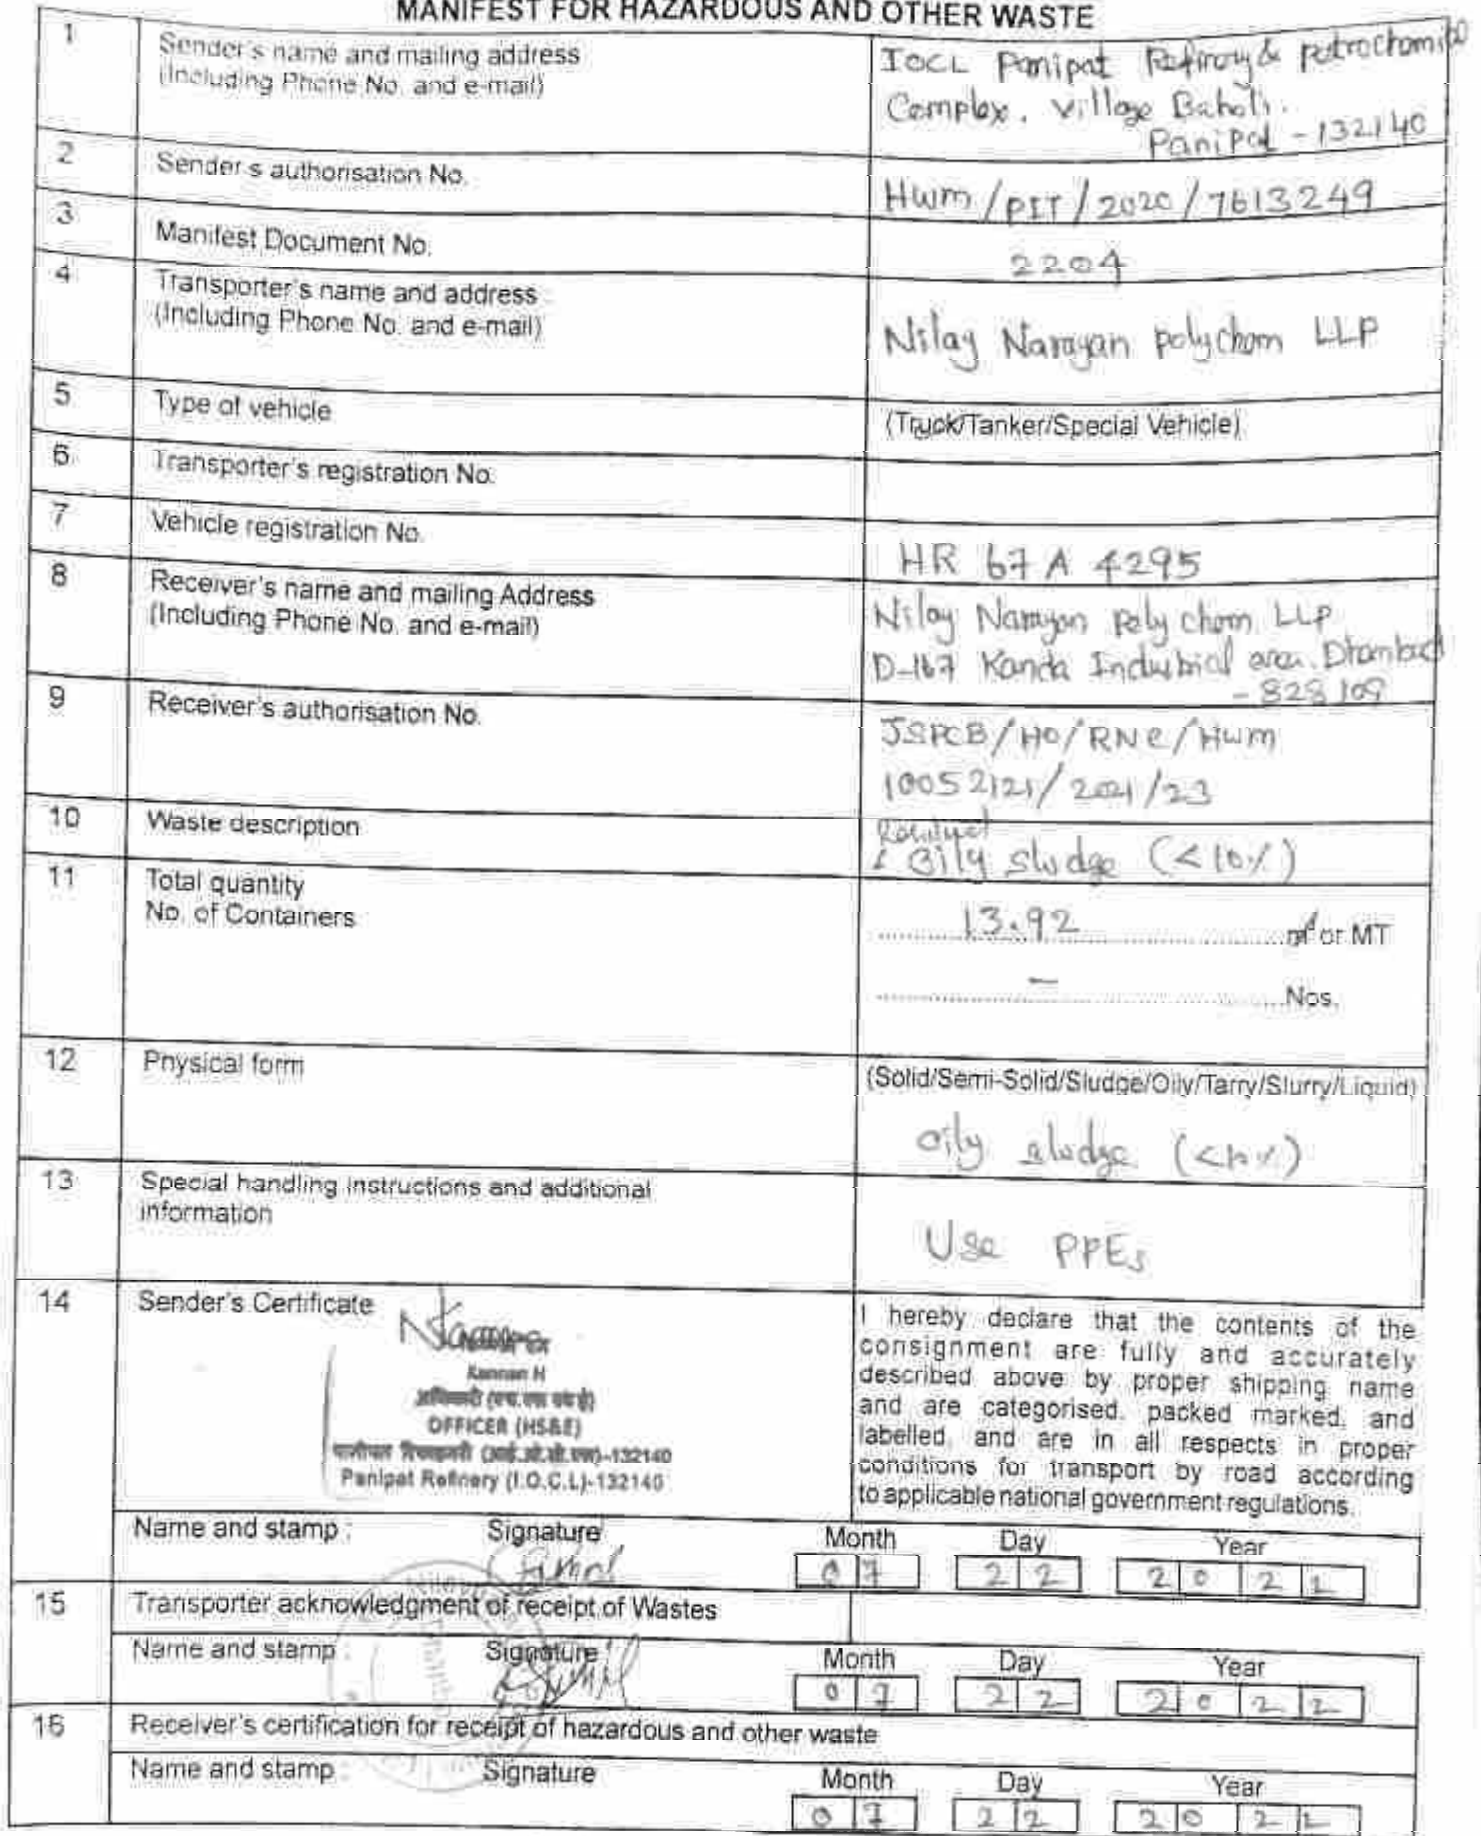 MANIFEST FOR HAZARDOUS AND OTHER WASTE
1 Sender's name and mailing address
(Including Phone No. and e-mail)
IOCL Panipat Refinery & petrochemical
Complex, village Baholi.
Panipat - 132140
2 Sender's authorisation No.
HWM/PIT/2020/7613249
3 Manifest Document No.
2204
4 Transporter's name and address
(Including Phone No. and e-mail)
Nilay Narayan polychem LLP
5 Type of vehicle
(Truck/Tanker/Special Vehicle)
6 Transporter's registration No.
7 Vehicle registration No.
HR 67 A 4295
8 Receiver's name and mailing Address
(Including Phone No. and e-mail)
Nilay Narayan Poly chem LLP
D-167 Kandra Industrial area, Dhanbad
- 828109
9 Receiver's authorisation No.
JSPCB/HO/RNC/HWM
10052121/2021/23
10 Waste description
Oily sludge (<10%)
11 Total quantity
No. of Containers
13.92 m³ or MT
– Nos.
12 Physical form
(Solid/Semi-Solid/Sludge/Oily/Tarry/Slurry/Liquid)
oily sludge (<10%)
13 Special handling instructions and additional
information
Use PPEs
14 Sender's Certificate
Kannan H
OFFICER (HS&E)
Panipat Refinery (I.O.C.L)-132140
I hereby declare that the contents of the
consignment are fully and accurately
described above by proper shipping name
and are categorised, packed marked, and
labelled, and are in all respects in proper
conditions for transport by road according
to applicable national government regulations.
Name and stamp : Signature Month Day Year
07 22
15 Transporter acknowledgment of receipt of Wastes
Name and stamp : Signature Month Day Year
07 22 2022
16 Receiver's certification for receipt of hazardous and other waste
Name and stamp : Signature Month Day Year
07 22